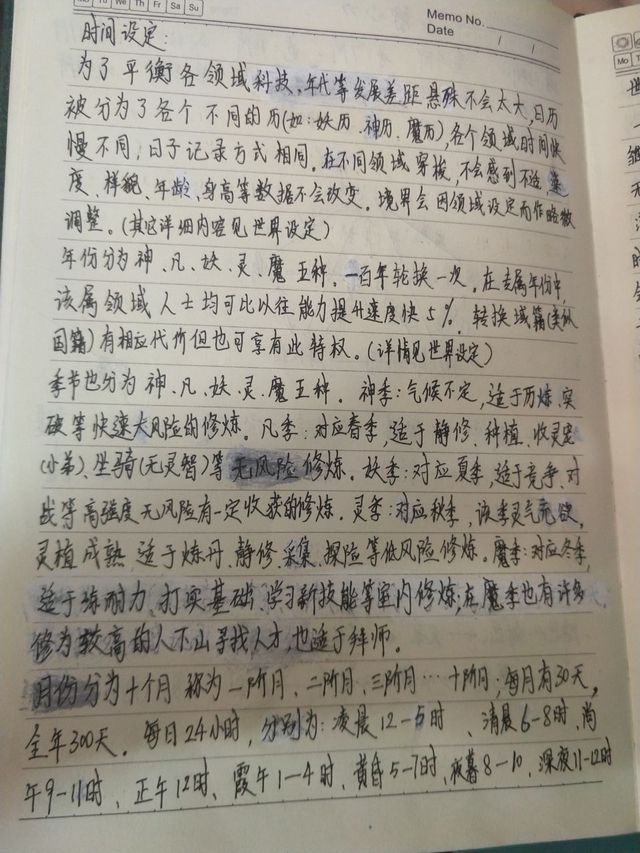 Mo Tu We Th Fr Sa Su
Memo No.
Date / /
时间设定:
为了平衡各领域科技、年代等发展差距悬殊不会太大,日历
被分为了各个不同的历(如:妖历、神历、魔历),各个领域时间快
慢不同,日子记录方式相同。在不同领域穿梭,不会感到不适,速
度、样貌、年龄、身高等数据不会改变。境界会因领域设定而作略微
调整。(其它详细内容见世界设定)
年份分为神、凡、妖、灵、魔五种。一百年轮换一次。在专属年份中,
该属领域人士均可比以往能力提升速度快5%。转换域籍(类似
国籍)有相应代价但也可享有此特权。(详情见世界设定)
季节也分为神、凡、妖、灵、魔五种。神季:气候不定,适于历炼、突
破等快速大风险的修炼。凡季:对应春季,适于静修、种植、收灵宠
(小弟)、坐骑(无灵智)等无风险修炼。妖季:对应夏季,适于竞争、对
战等高强度无风险有一定收获的修炼。灵季:对应秋季,该季灵气充
灵植成熟 适于炼丹、静修、采集、探险等低风险修炼。魔季:对应冬季,
适于练耐力、打实基础、学习新技能等室内修炼;在魔季也有许多
修为较高的人下山寻找人才,也适于拜师。
月份分为十个月 称为一阶月、二阶月、三阶月…十阶月;每月有30天,
全年300天。每日24小时,分别为:凌晨12-5时、清晨6-8时、尚
午9-11时、正午12时、霞午1-4时、黄昏5-7时、夜暮8-10、深夜11-12时